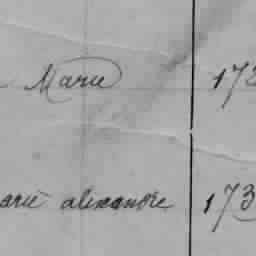 Marie 172
arie alexandre 173